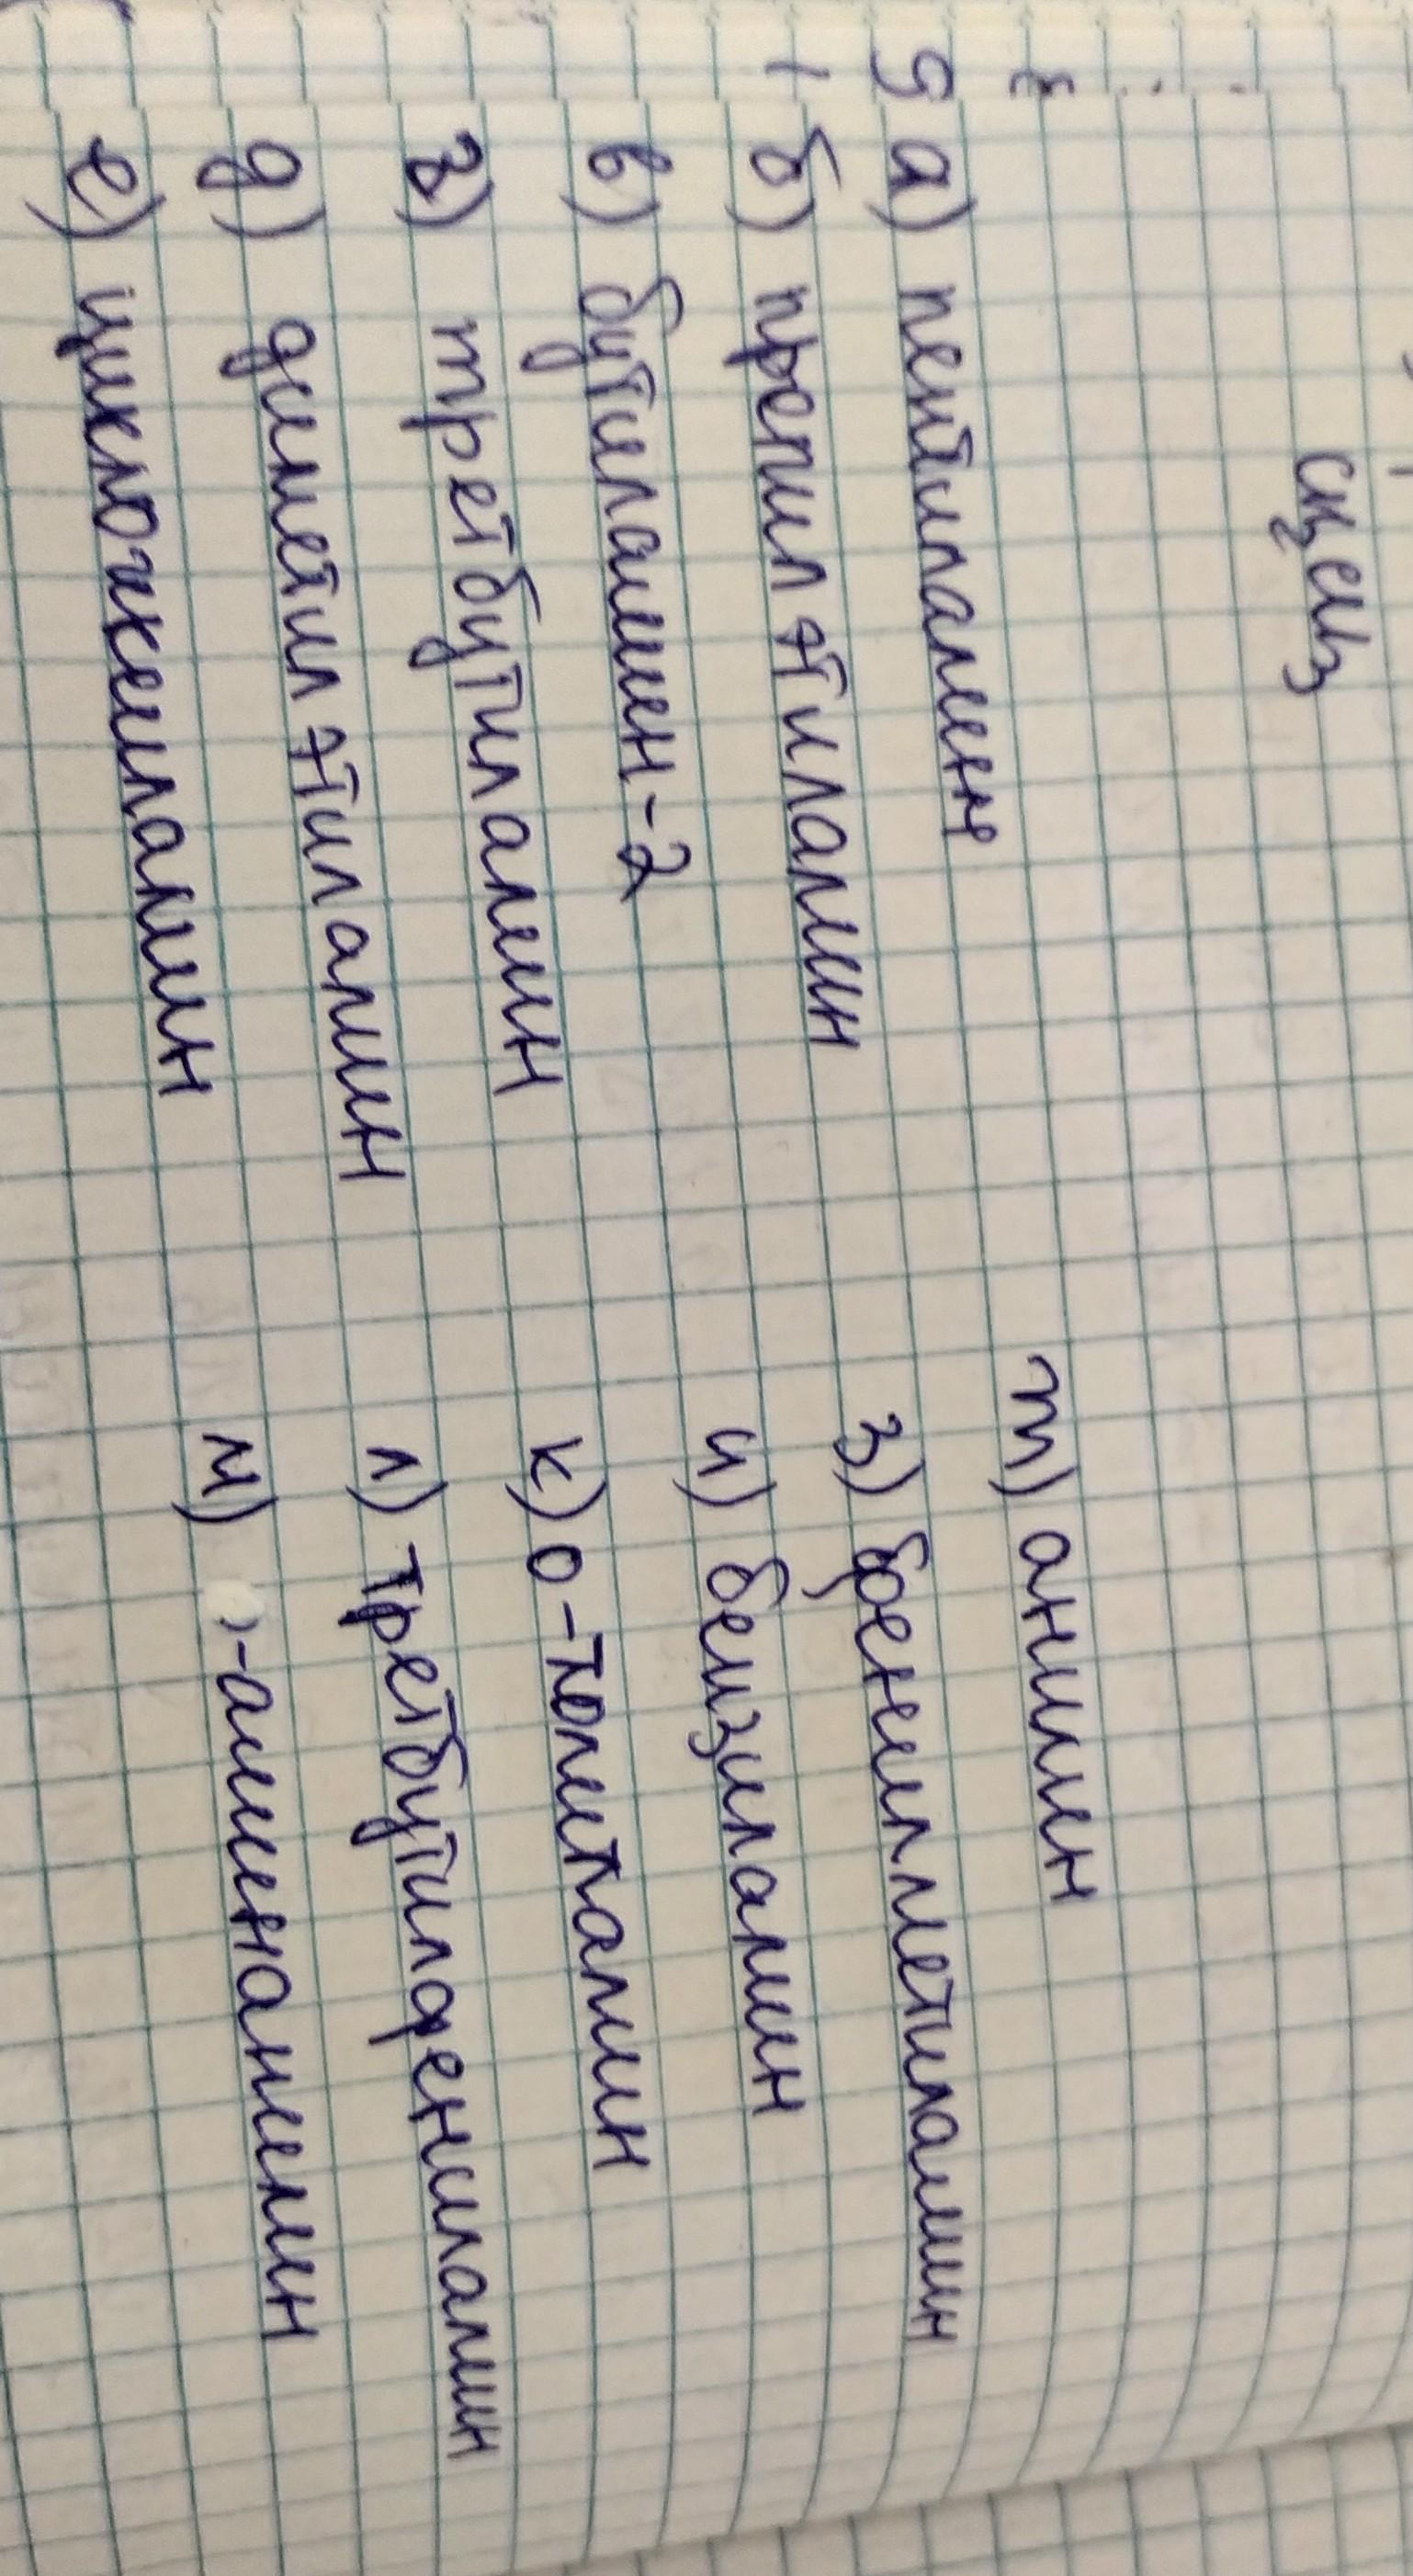 а) пентиламин
б) пропилэтиламин
в) бутиламин-2
г) третбутиламин
д) диметилэтиламин
е) циклогексиламин
m) анилин
з) фенилметиламин
и) бензиламин
к) о-толиламин
л) третбутилфениламин
м) -аминанилин